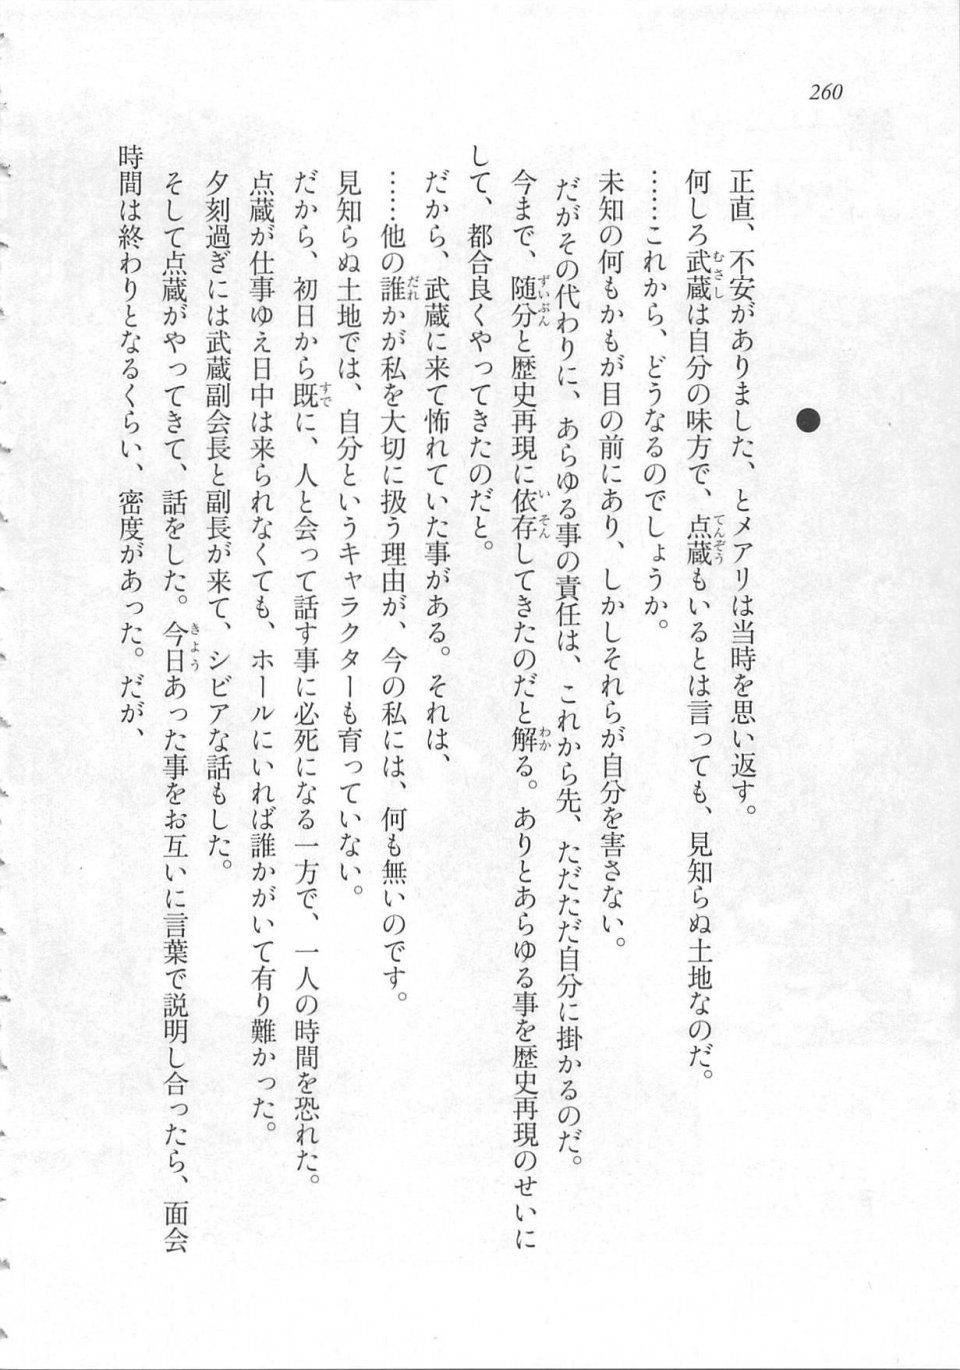 260
●
正直、不安がありました、とメアリは当時を思い返す。
何しろ武蔵は自分の味方で、点蔵もいるとは言っても、見知らぬ土地なのだ。
……これから、どうなるのでしょうか。
未知の何もかもが目の前にあり、しかしそれらが自分を害さない。
だがその代わりに、あらゆる事の責任は、これから先、ただただ自分に掛かるのだ。
今まで、随分と歴史再現に依存してきたのだと解る。ありとあらゆる事を歴史再現のせいに
して、都合良くやってきたのだと。
だから、武蔵に来て怖れていた事がある。それは、
……他の誰かが私を大切に扱う理由が、今の私には、何も無いのです。
見知らぬ土地では、自分というキャラクターも育っていない。
だから、初日から既に、人と会って話す事に必死になる一方で、一人の時間を恐れた。
点蔵が仕事ゆえ日中は来られなくても、ホールにいれば誰かがいて有り難かった。
夕刻過ぎには武蔵副会長と副長が来て、シビアな話もした。
そして点蔵がやってきて、話をした。今日あった事をお互いに言葉で説明し合ったら、面会
時間は終わりとなるくらい、密度があった。だが、